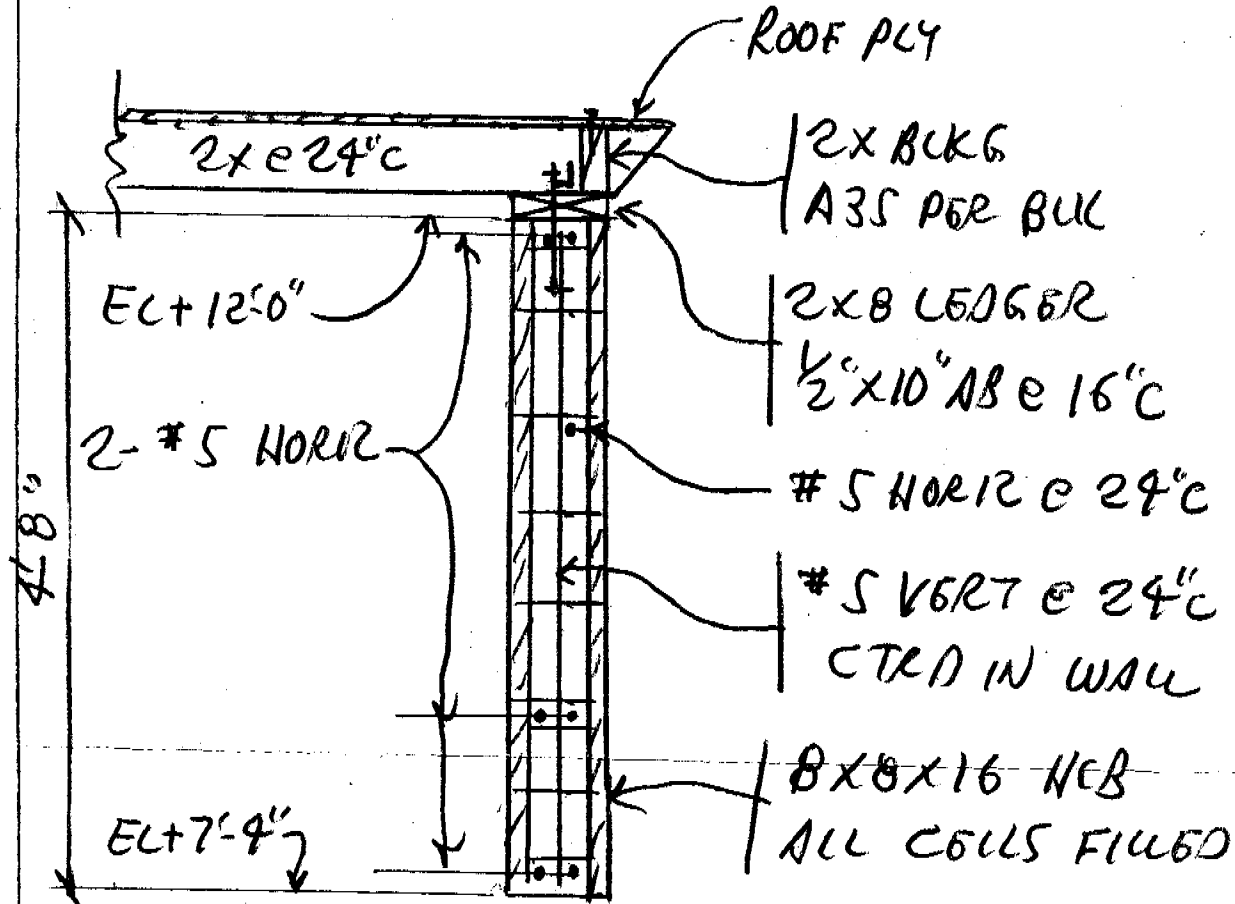 ROOF PLY
2X @ 24"C
2X BLKG
A35 PER BLK
EL+12'-0"
2X8 LEDGER
1/2"X10" AB @ 16"C
2-#5 HORIZ
#5 HORIZ @ 24"C
4'-8"
#5 VERT @ 24"C
CTRD IN WALL
8X8X16 HCB
ALL CELLS FILLED
EL+7'-4"